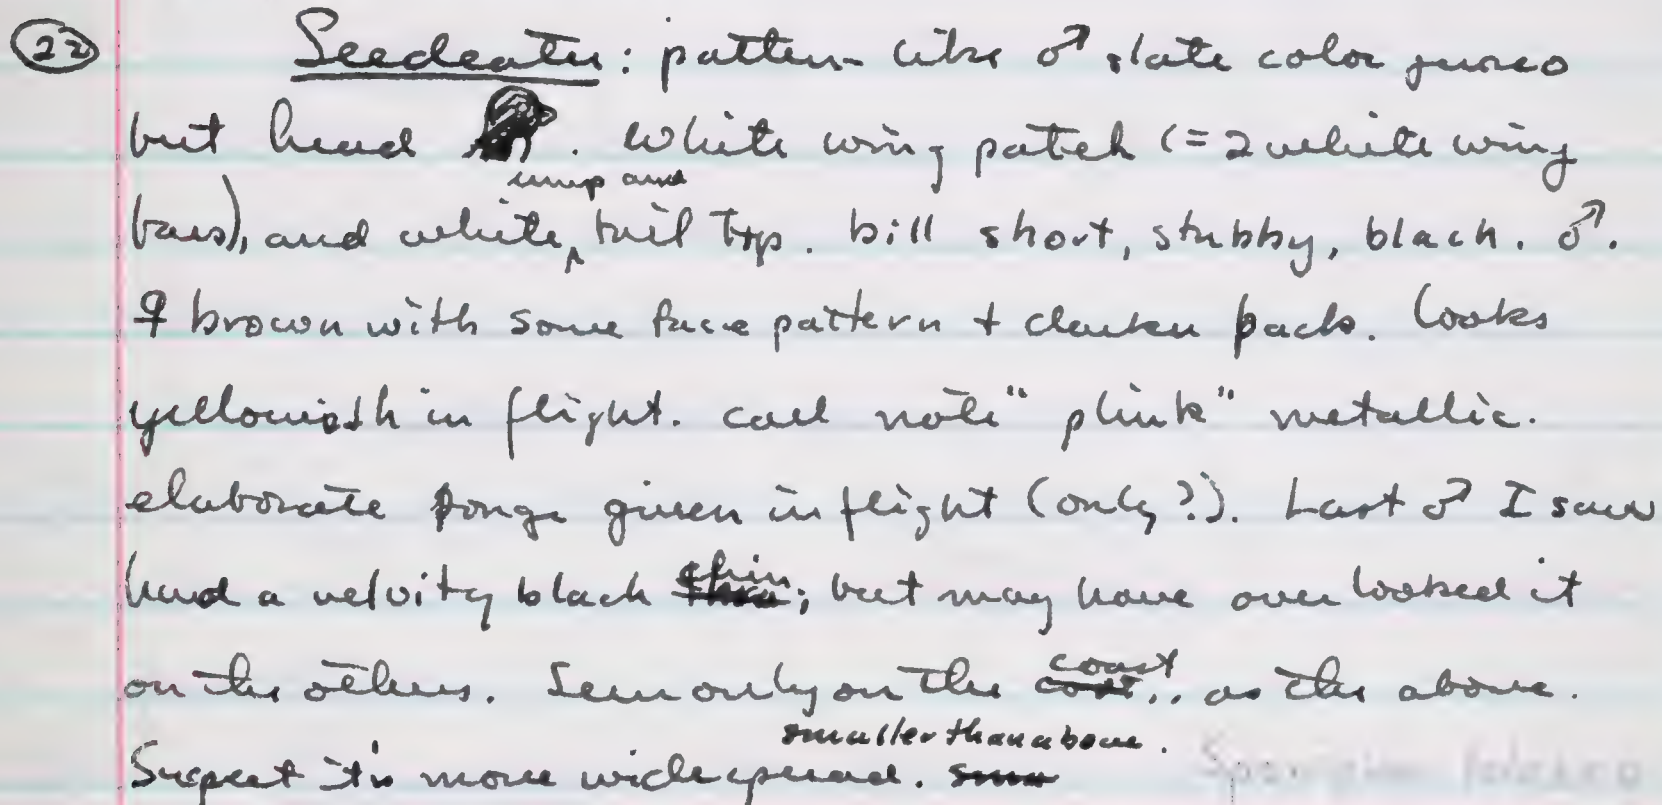 22 Seedeater: pattern like ♂ slate color junco
but head . White wing patch (= 2 white wing
rump and
bars), and white ^ tail top. bill short, stubby, black. ♂.
♀ brown with some face pattern + darker back. Looks
yellowish in flight. call note "plink" metallic.
elaborate songs given in flight (only?). Last ♂ I saw
had a velvity black chin; but may have over looked it
on the others. Seen only on the coast, as the above.
smaller than above.
Suspect it's more widespread.